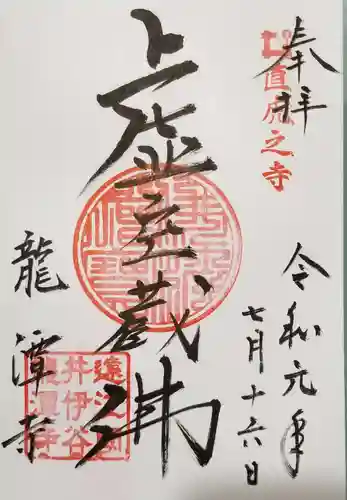 奉拝
直虎之寺
令和元年
七月十六日
虚空蔵佛
龍潭寺
遠江國
井伊谷
龍潭寺